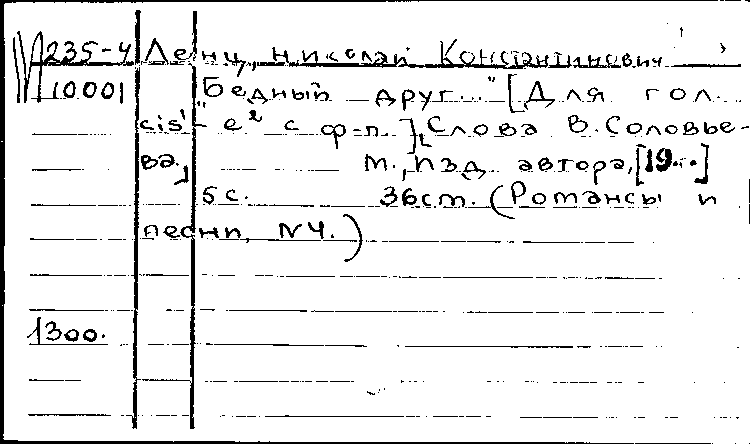 М235-4 Ленц, Николай Константинович
10001 "Бедный друг..." [Для гол.
cis¹ - e² с ф-п.], Слова В. Соловье-
ва.] М., Изд. автора, [19..г.]
5 с. 36 см. (Романсы и
песни, №4.)
1300.